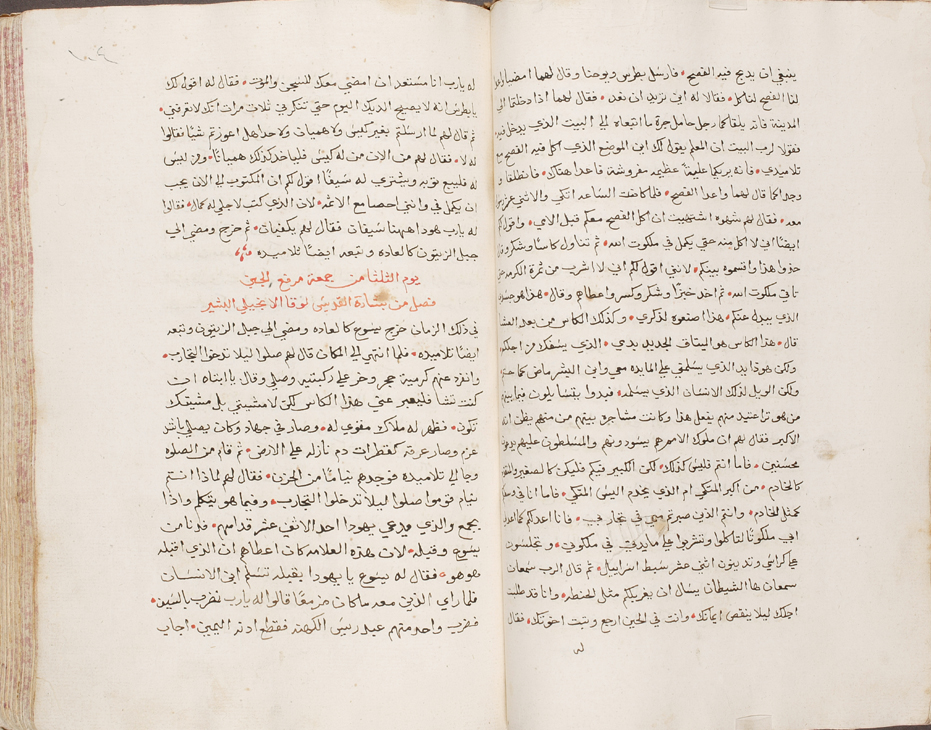 ينبغي ان يذبح فيه الفصح • فارسل بطرس ويوحنا وقال لهما امضيا اعدا
لنا الفصح لناكل • فقالا له اين تريد ان نعد • فقال لهما اذا دخلتما الى
المدينة فانه يلقاكما رجل حامل جرة ما اتبعاه الى البيت الذي يدخل فيه
فقولا لرب البيت ان المعلم يقول لك اين الموضع الذي اكل فيه الفصح مع
تلاميذي • فانه يريكما علية عظيمه مفروشة فاعدا هناك • فانطلقا و
وجدا كما قال لهما واعدا الفصح • فلما كانت الساعه اتكى والاثني عشر
معه • فقال لهم شهوه اشتهيت ان اكل الفصح معكم قبل الامي • واقول لكم
ايضا اني لا اكل منه حتى يكمل في ملكوت الله • ثم تناول كاسا وشكر وقال
خذوا هذا واقسموه بينكم • لانني اقول لكم اني لا اشرب من ثمرة الكرمه حتى
تاتي ملكوت الله • ثم اخذ خبزًا وشكر وكسر واعطاهم وقال • هذا هو جسدي
الذي يبدل عنكم • هذا اصنعوه لذكري • وكذلك الكاس من بعد العشا
قال • هذا الكاس هو الميتاق الجديد بدمي • الذي يسفك من اجلكم
ولكن هوذا يد الذي يسلمني على المايده معي وابن البشر ماض كما حتم
ولكن الويل لذلك الانسان الذي يسلمه • فبدوا يتسايلون فيما بينهم
من هو ترا عتيد منهم يفعل هذا وكانت مشاجرة بينهم من منهم يظن انه
الاكبر فقال لهم ان ملوك الامم هم يسودونهم والمسلطون عليهم يدعون
محسنين • فاما انتم فليس كذلك • لكن الكبير فيكم فليكن كالصغير والمتقدم
كالخادم • من اكبر المتكي ام الذي يخدم اليس المتكي • فاما انا في وسطكم
كمثل الخادم • وانتم الذين صبرتم معي في تجاربي • فانا اعدكم كما اعد لي
ابي ملكوتًا لتاكلوا وتشربوا على مايدتي في ملكوتي • وتجلسون
على كراسي وتدينون اثني عشر سبط اسراييل • ثم قال الرب سمعان
سمعان ها الشيطان يسال ان يغربلكم مثل الحنطه • وانا قد طلبت
اجلك ليلا ينقص ايمانك • وانت في الحين ارجع وثبت اخوتك • فقال
له
له يارب انا مستعد ان امضي معك للسجن والموت • فقال له اقول لك
يا بطرس انه لا يصيح الديك اليوم حتى تنكرني ثلات مرات انك لا تعرفني •
ثم قال لهم لما ارسلتم بغير كيس ولا هميان ولا حدا هل اعوزتم شيا فقالوا
له لا • فقال لهم من الان من له كيس فلياخد كذلك هميانا • ومن ليس
له فليبع توبه ويشتري له سيفًا اقول لكم ان المكتوب لي الان يجب
ان يكمل في وانني احصا مع الاثمه • لان الذي كتب لاجلي له كمال • فقالوا
له يارب هودا ههنا سيفان فقال لهم يكفيان • ثم خرج ومضى الى
جبل الزيتون كالعاده وتبعه ايضًا تلاميذه
يوم الثلثا من جمعة مرفع الجبن
فصل من بشارة القديس لوقا الانجيلي البشير
في ذلك الزمان خرج يسوع كالعاده ومضى الى جبل الزيتون وتبعه
ايضًا تلاميذه • فلما انتهى الى المكان قال لهم صلوا ليلا تدخلوا التجارب •
وانفرد عنهم كرمية حجر وخر على ركبتيه وصلى وقال يا ابتاه ان
كنت تشا فليعبر عني هذا الكاس لكن لا مشيتي بل مشيتك
تكون • فظهر له ملاك مقوي له • وصار في جهاد وكان يصلي باشد
عزم وصار عرقه كقطرات دم نازله على الارض • ثم قام من الصلوه
وجا الى تلاميذه فوجدهم نيامًا من الحزن • فقال لهم لماذا انتم
نيام قوموا صلوا ليلا تدخلوا التجارب • وفيما هو يتكلم واذا
بجمع والذي يدعى يهودا احد الاثني عشر قدامهم • فدنا من
يسوع وقبله • لان هذه العلامه كان اعطاهم ان الذي اقبله
هو هو • فقال له يسوع يا يهودا بقبله تسلم ابن الانسان
فلما راي الذين معه ما كان مزمعًا قالوا له يارب نضرب بالسيف •
فضرب واحد منهم عبد رييس الكهنه فقطع ادنه اليمين • اجاب